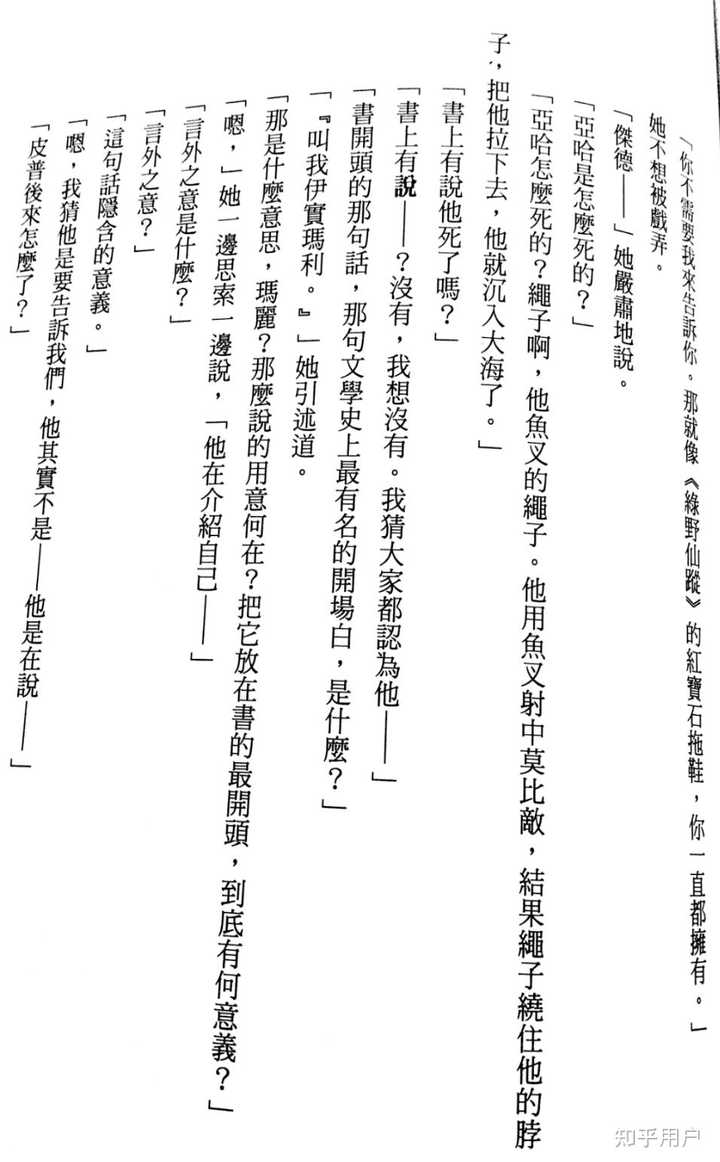 「你不需要我來告訴你。那就像《綠野仙蹤》的紅寶石拖鞋，你一直都擁有。」
她不想被戲弄。
「傑德——」她嚴肅地說。
「亞哈是怎麼死的？」
「亞哈怎麼死的？繩子啊，他魚叉的繩子。他用魚叉射中莫比敵，結果繩子繞住他的脖
子，把他拉下去，他就沉入大海了。」
「書上有說他死了嗎？」
「書上有說——？沒有，我想沒有。我猜大家都認為他——」
「書開頭的那句話，那句文學史上最有名的開場白，是什麼？」
「『叫我伊實瑪利。』」她引述道。
「那是什麼意思，瑪麗？那麼說的用意何在？把它放在書的最開頭，到底有何意義？」
「嗯，」她一邊思索一邊說，「他在介紹自己——」
「言外之意是什麼？」
「言外之意？」
「這句話隱含的意義。」
「嗯，我猜他是要告訴我們，他其實不是——他是在說——」
「皮普後來怎麼了？」
知乎用户